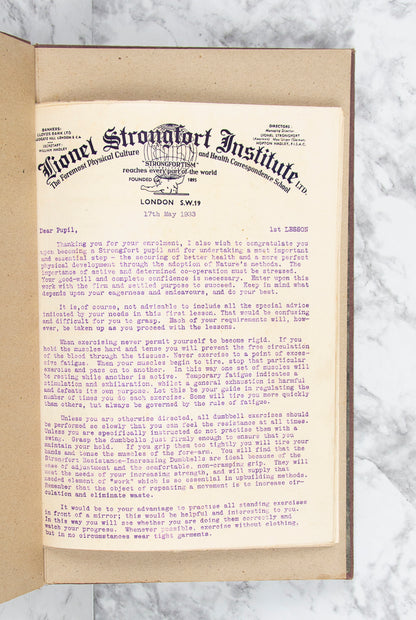 BANKERS:
LLOYDS BANK LTD.
LUDGATE HILL LONDON E.C.4
SECRETARY:
WILLIAM HADLEY
DIRECTORS:
Managing Director
LIONEL STRONGFORT
HOPTON HADLEY, F.I.S.A.C.
Lionel Strongfort Institute LTD.
The Foremost Physical Culture and Health Correspondence School
"STRONGFORTISM"
reaches every part of the world
FOUNDED 1895
LONDON S.W.19
17th May 1933
Dear Pupil, 1st LESSON
Thanking you for your enrolment, I also wish to congratulate you
upon becoming a Strongfort pupil and for undertaking a most important
and essential step - the securing of better health and a more perfect
physical development through the adoption of Nature's methods. The
importance of active and determined co-operation must be stressed.
Your good-will and complete confidence is necessary. Enter upon this
work with the firm and settled purpose to succeed. Keep in mind what
depends upon your eagerness and endeavours, and do your best.
It is, of course, not advisable to include all the special advice
indicated by your needs in this first lesson. That would be confusing
and difficult for you to grasp. Each of your requirements will, how-
ever, be taken up as you proceed with the lessons.
When exercising never permit yourself to become rigid. If you
hold the muscles hard and tense you will prevent the free circulation
of the blood through the tissues. Never exercise to a point of exces-
sive fatigue. When your muscles begin to tire, stop that particular
exercise and pass on to another. In this way one set of muscles will
be resting while another is active. Temporary fatigue indicates a
stimulation and exhilaration, whilst a general exhaustion is harmful
and defeats its own purpose. Let this be your guide in regulating the
number of times you do each exercise. Some will tire you more quickly
than others, but always be governed by the rule of fatigue.
Unless you are otherwise directed, all dumbbell exercises should
be performed so slowly that you can feel the resistance at all times.
Unless you are specifically instructed do not practise them with a
swing. Grasp the dumbbells just firmly enough to ensure that you
maintain your hold. If you grip them too tightly you will tire your
hands and tense the muscles of the fore-arm. You will find that the
Strongfort Resistance-Increasing Dumbbells are ideal because of the
ease of adjustment and the comfortable, non-cramping grip. They will
meet the needs of your increasing strength, and will supply that
needed element of "work" which is so essential in upbuilding methods.
Remember that the object of repeating a movement is to increase cir-
culation and eliminate waste.
It would be to your advantage to practise all standing exercises
in front of a mirror; this would be helpful and interesting to you.
In this way you will see whether you are doing them correctly and
watch your progress. Whenever possible, exercise without clothing,
but in no circumstances wear tight garments.